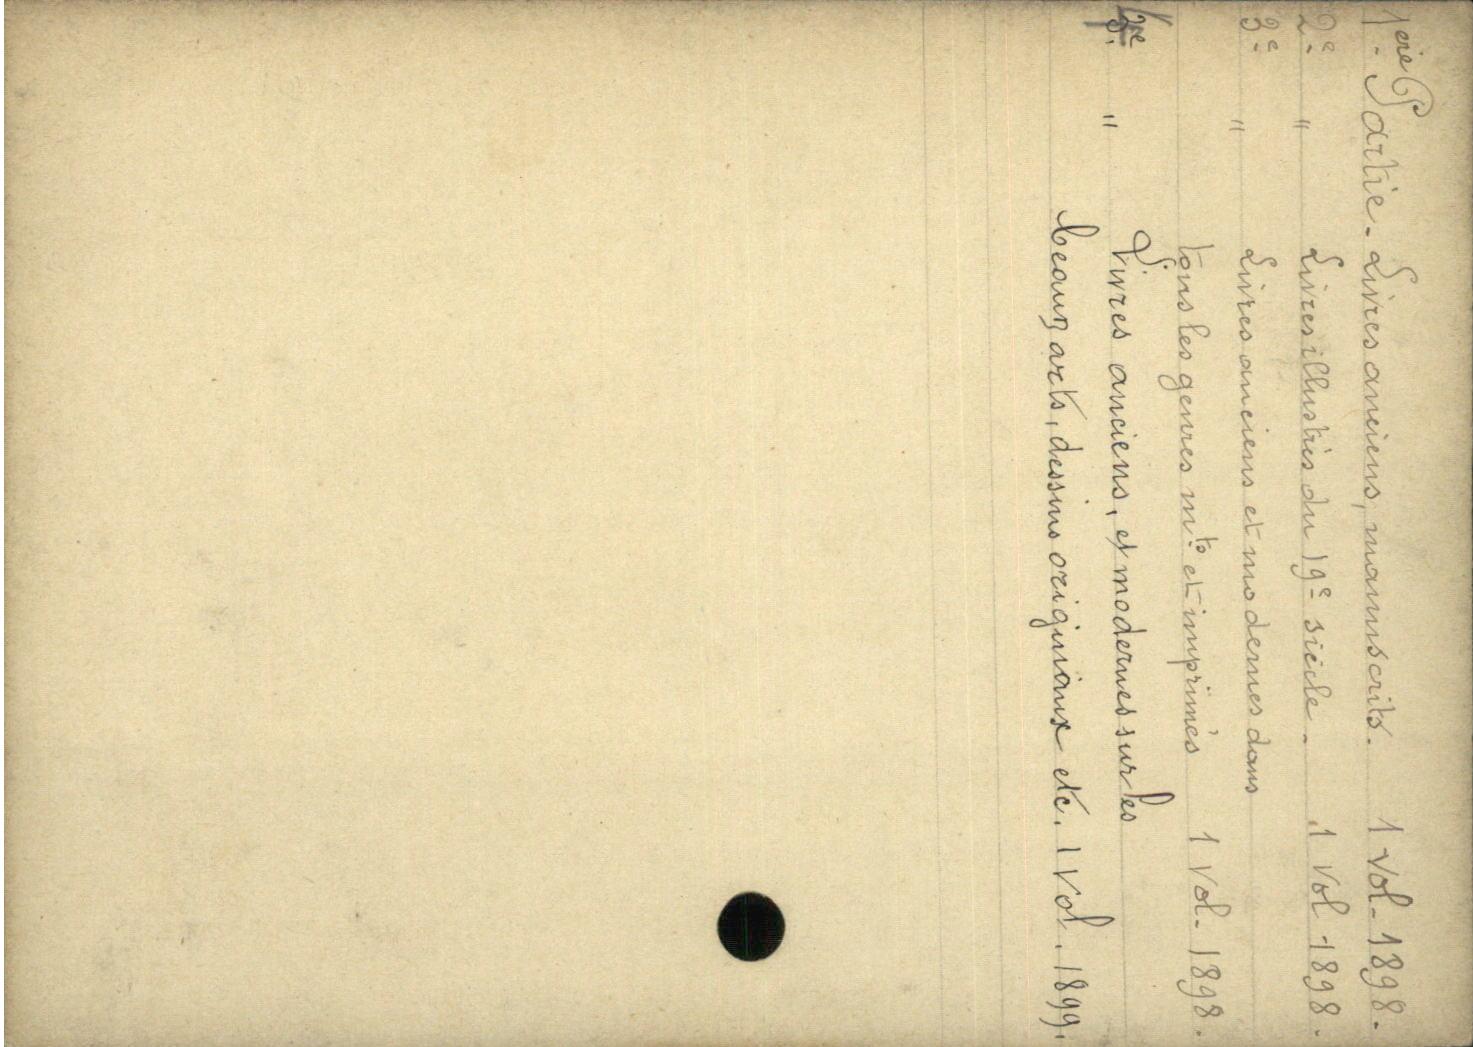 1ère Partie - Livres anciens, manuscrits. 1 Vol - 1898.
2e " Livres illustrés du 19e siècle - 1 Vol - 1898.
3e " Livres anciens et modernes dans
tous les genres mts et imprimés 1 Vol - 1898.
" Livres anciens, et modernes sur les
beaux arts, dessins originaux etc. 1 Vol. 1899.